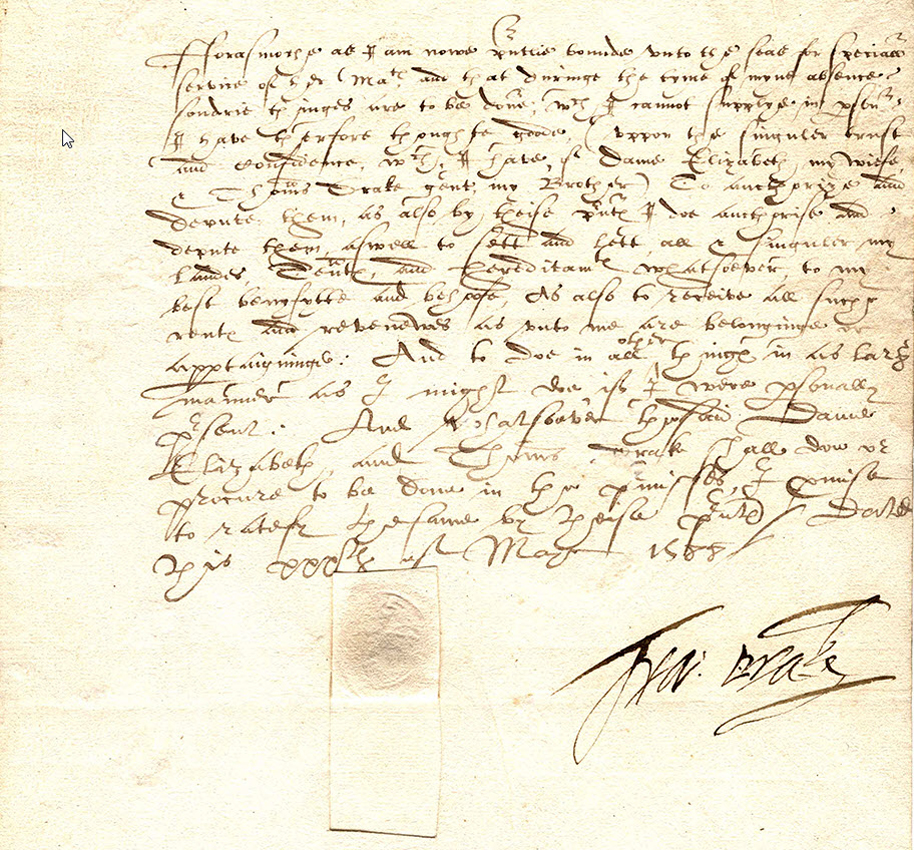 Fforasmoche as I am nowe pntlie bounde unto the seas for speciall
service of her Matie, and that duringe the tyme of myne absence
sondrie thinges are to be done, wch I cannot supplye in pson,
I have therfore thoughte goode, (uppon the singuler trust
and confidence, wch I have, of Dame Elizabeth my wiefe,
& Thoms Drake gent, my Brother) To aucthorize and
depute them, as also by theise pntes I doe aucthorise and
depute them, aswell to sett and lett all & singuler my
landes, Tentes, and hereditamtes whatsoever, to my
best benyfytte and behofe, As also to receive all suche
rentes and revenewes as unto me are belonginge or
apptayninge: And to doe in all other thinges in as large
manner as I might doe if I were psonally
psent: And whatsoever thafsaid Dame
Elizabeth, and Thoms Drake shall doe or
procure to be done in the pmisses, I pmise
to ratefy the same by theise pntes / Dated
this xxxth of May 1588 /
Fra: Drake